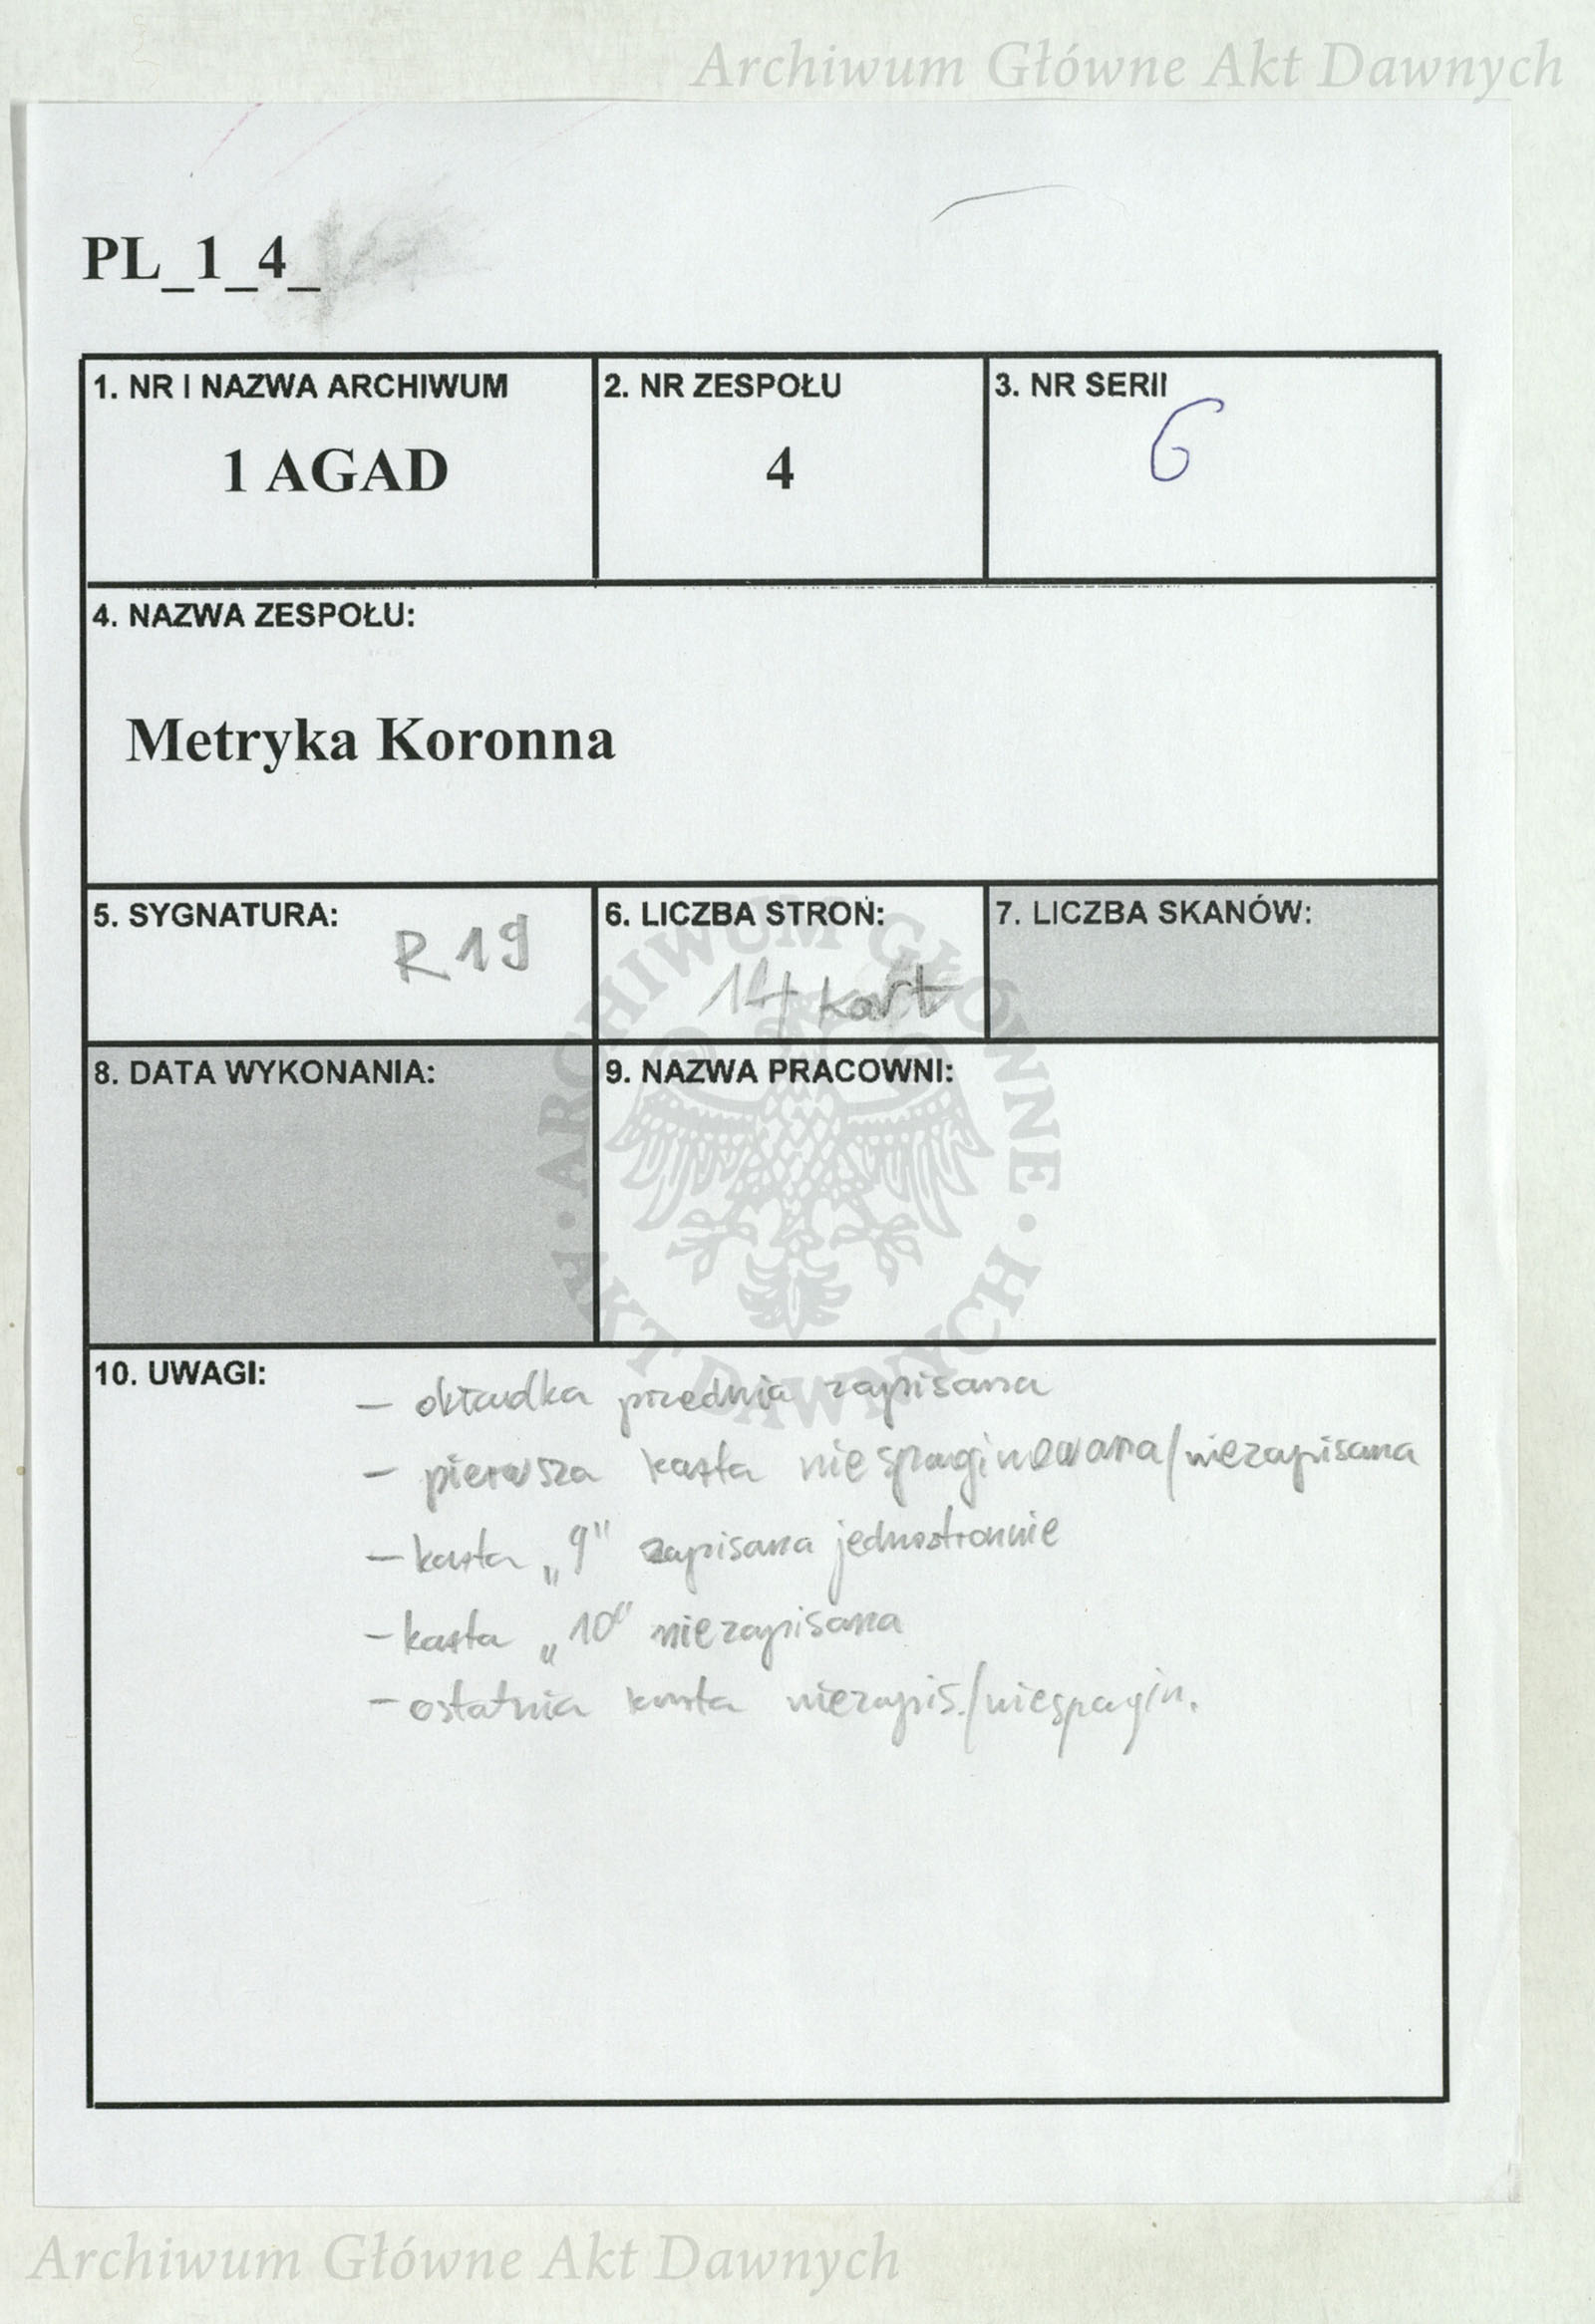 Archiwum Główne Akt Dawnych
PL_1_4_
1. NR I NAZWA ARCHIWUM
1 AGAD
2. NR ZESPOŁU
4
3. NR SERII
6
4. NAZWA ZESPOŁU:
Metryka Koronna
5. SYGNATURA:
R 19
6. LICZBA STRON:
14 kart
7. LICZBA SKANÓW:
8. DATA WYKONANIA:
9. NAZWA PRACOWNI:
ARCHIWUM GŁÓWNE · AKT DAWNYCH ·
10. UWAGI:
- okładka przednia zapisana
- pierwsza karta niespaginowana/niezapisana
- karta „9" zapisana jednostronnie
- karta „10" niezapisana
- ostatnia karta niezapis./niespagin.
Archiwum Główne Akt Dawnych